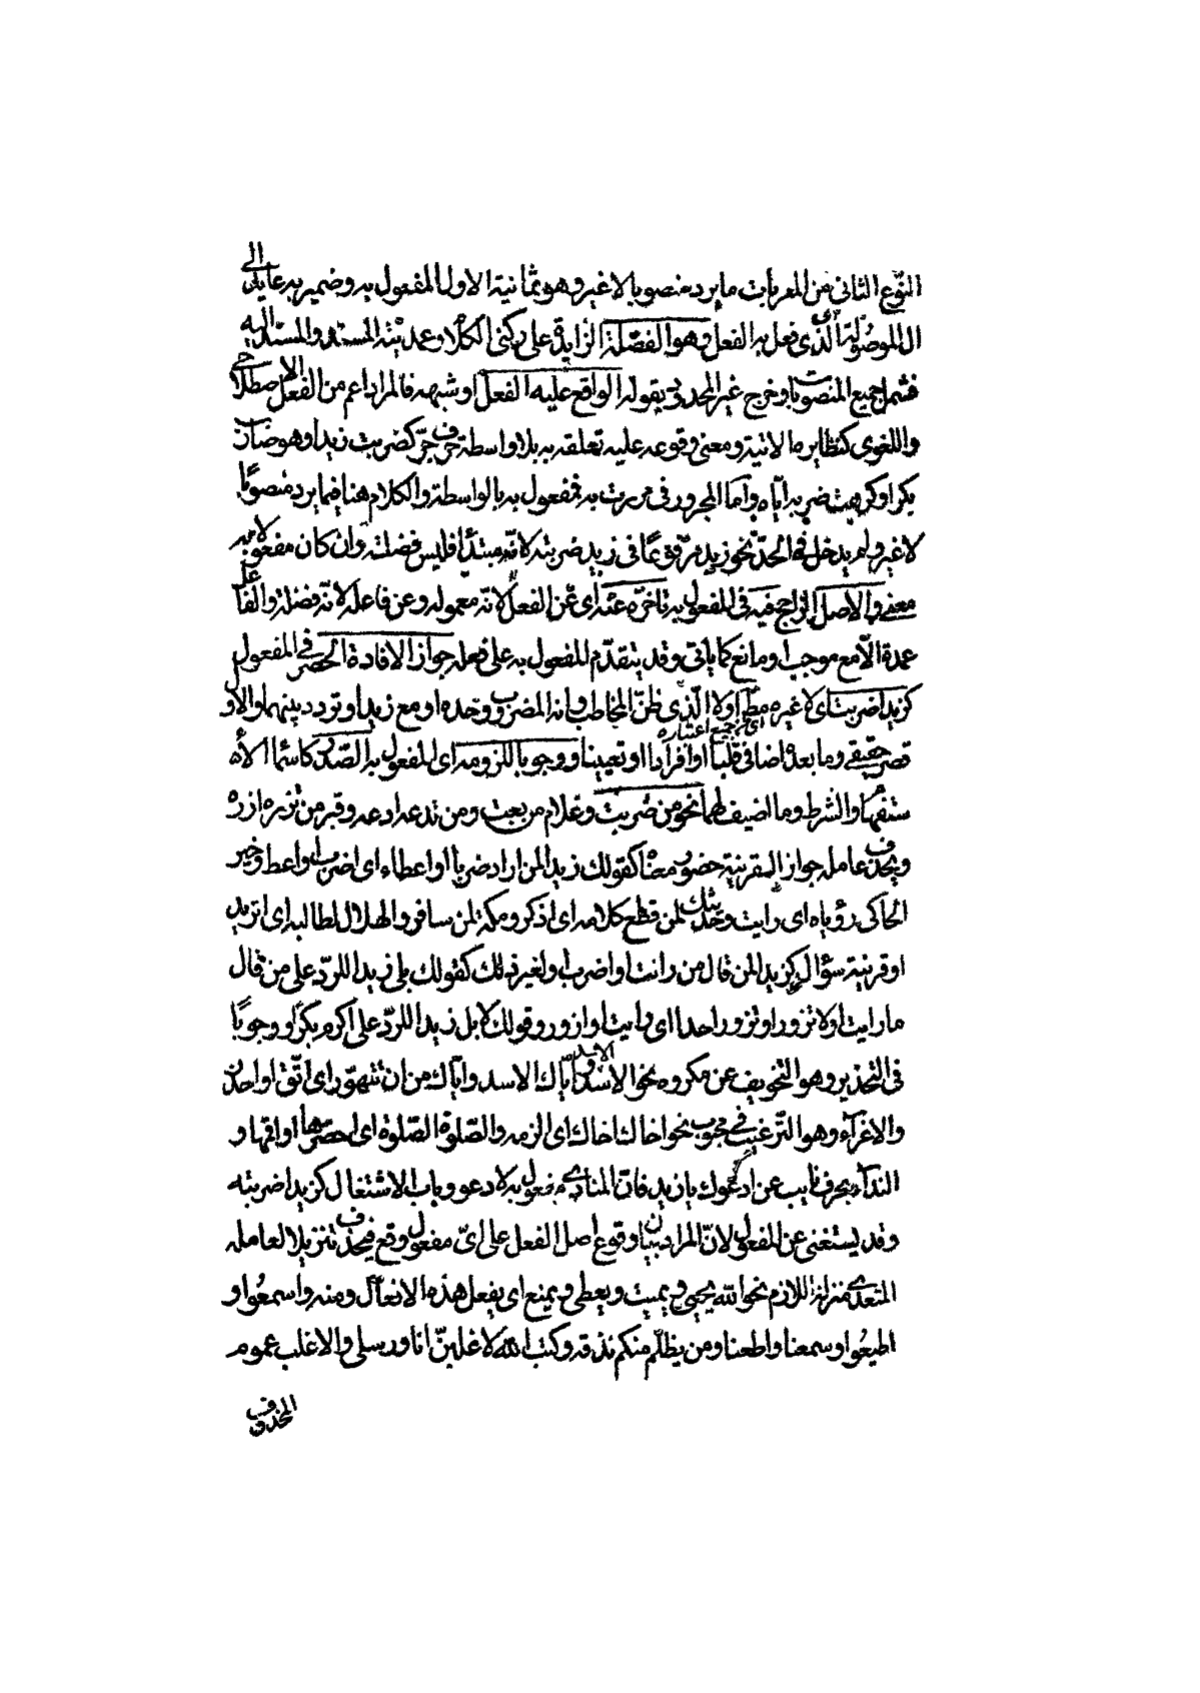 النّوع الثانى من المعربات ما يرد منصوبا لا غير وهو ثمانية الاول المفعول به وضمير به عايد الى
ال الموصولة اى الّذى فعل به الفعل وهو الفضلة الزايدة على ركنى الكلام وعمديته المسند والمسند اليه
فشمل جميع المنصوبات وخرج غير المحدود بقوله الواقع عليه الفعل او شبهه فالمراد اعم من الفعل الاصطلاحى
واللغوى كنظايره الاتية ومعنى وقوعه عليه تعلقه به بلا واسطة حرف جرّ كضربت زيدا وهو ضارب
بكرا وكرهت ضربه اياه وامّا المجرور فى مررت به فمفعول به بالواسطة والكلام هنا فيما يرد منصوبًا
لا غير ولم يدخل فى الحدّ نحو زيد مرفوعًا فى زيد ضربته لانّه مبتدأ فليس فضلة وان كان مفعولا به
معنى والاصل الراجح فيه فى المفعول به تاخّره عنه اى عن الفعل لانّه معموله وعن فاعله لانّه فضلة والفاعل
عمدة الّا مع موجب او مانع كما ياتى وقد يتقدّم المفعول به على فعله جوازا لافادة الحصر فى المفعول
كزيدا ضربت اى لا غيره مطلقا او لا الّذى ظنّ المخاطب انه المضروب وحده او مع زيد او تردد بينهما والاول
قصر حقيقى وما بعده اضافى قلبا او افرادا او تعيينا ووجوبا للزومه اى المفعول به الصّدر كاسماء الا
ستفهام والشرط وما اضيف لهما نحو من ضربت وغلام من بعت ومن تدعه ادعه وقبر من تزره ازره
ويحذف عامله جوازا لقرينة حضور معناه كقولك زيدا لمن اراد ضربا او اعطاء اى اضرب او اعط وخير
الحاكى رؤياه اى رايت وحديثك لمن قطع كلامه اى اذكر ومكة لمن سافر والهلال لطالبه اى اتريد
او قرينة سؤال كزيدا لمن قال من رايت او اضرب او لغير ذلك كقولك بلى زيدا للردّ على من قال
ما رايت او لا تزور او تزور احدا اى رايت او ازور وقولك لا بل زيدا للردّ على اكرم بكرًا ووجوبًا
فى التحذير وهو التخويف عن مكروه نحو الاسد الاسد وايّاك الاسد وايّاك من ان تتهوّر اى اتّق او احذر
والاغرآء وهو الترغيب فى محبوب نحو اخاك اخاك اى الزمه والصّلوة الصّلوة اى احضرها او اقمها و
الندآء بحرف نايب عن ادعوك يا زيد فانّ المنادى مفعول به لادعو وباب الاشتغال كزيدا ضربته
وقد يستغنى عن المفعول لانّ المراد بيان وقوع اصل الفعل على اىّ مفعول وقع فيحذف تنزيلا لعامله
المتعدى منزلة اللازم نحو الله يحيى ويميت ويعطى ويمنع اى يفعل هذه الافعال ومنه واسمعُوا و
اطيعُوا وسمعنا واطعنا ومن يظلم منكم نذقه وكتب الله لاغلبنّ انا ورسلى والاغلب عموم
المحذوف